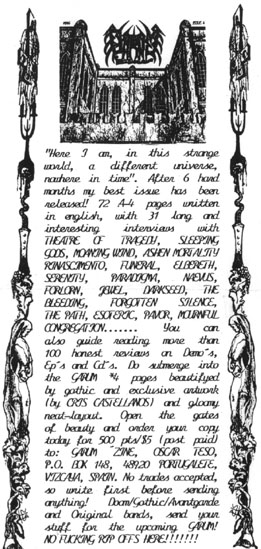 "Here I am, in this strange
world, a different universe,
nowhere in time". After 6 hard
months my best issue has been
released! 72 A-4 pages written
in english, with 31 long and
interesting interviews with
THEATRE OF TRAGEDY, SLEEPING
GODS, MOANING WIND, ASHEN MORTALITY
RINASCIMENTO, FUNERAL, ELBERETH,
SERENITY, PARADIGMA, NAEVUS,
FORLORN, JEWEL, DARKSEED, THE
BLEEDING, FORGOTTEN SILENCE,
THE PATH, ESOTERIC, PAVOR, MOURNFUL
CONGREGATION....... You can
also guide reading more than
100 honest reviews on Demo's,
Ep's and Cd's. Do submerge into
the GARUM #4 pages beautifyed
by gothic and exclusive artwork
(by CRIS CASTELLANOS) and gloomy
neat-layout. Open the gates
of beauty and order your copy
today for 500 pts/$5 (post paid)
to: GARUM ZINE, OSCAR TESO,
P.O. BOX 148, 48920 PORTUGALETE,
VIZCAIA, SPAIN. No trades accepted,
so write first before sending
anything! Doom/Gothic/Avantgarde
and Original bands, send your
stuff for the upcoming GARUM!
NO FUCKING RIP OFFS HERE!!!!!!!